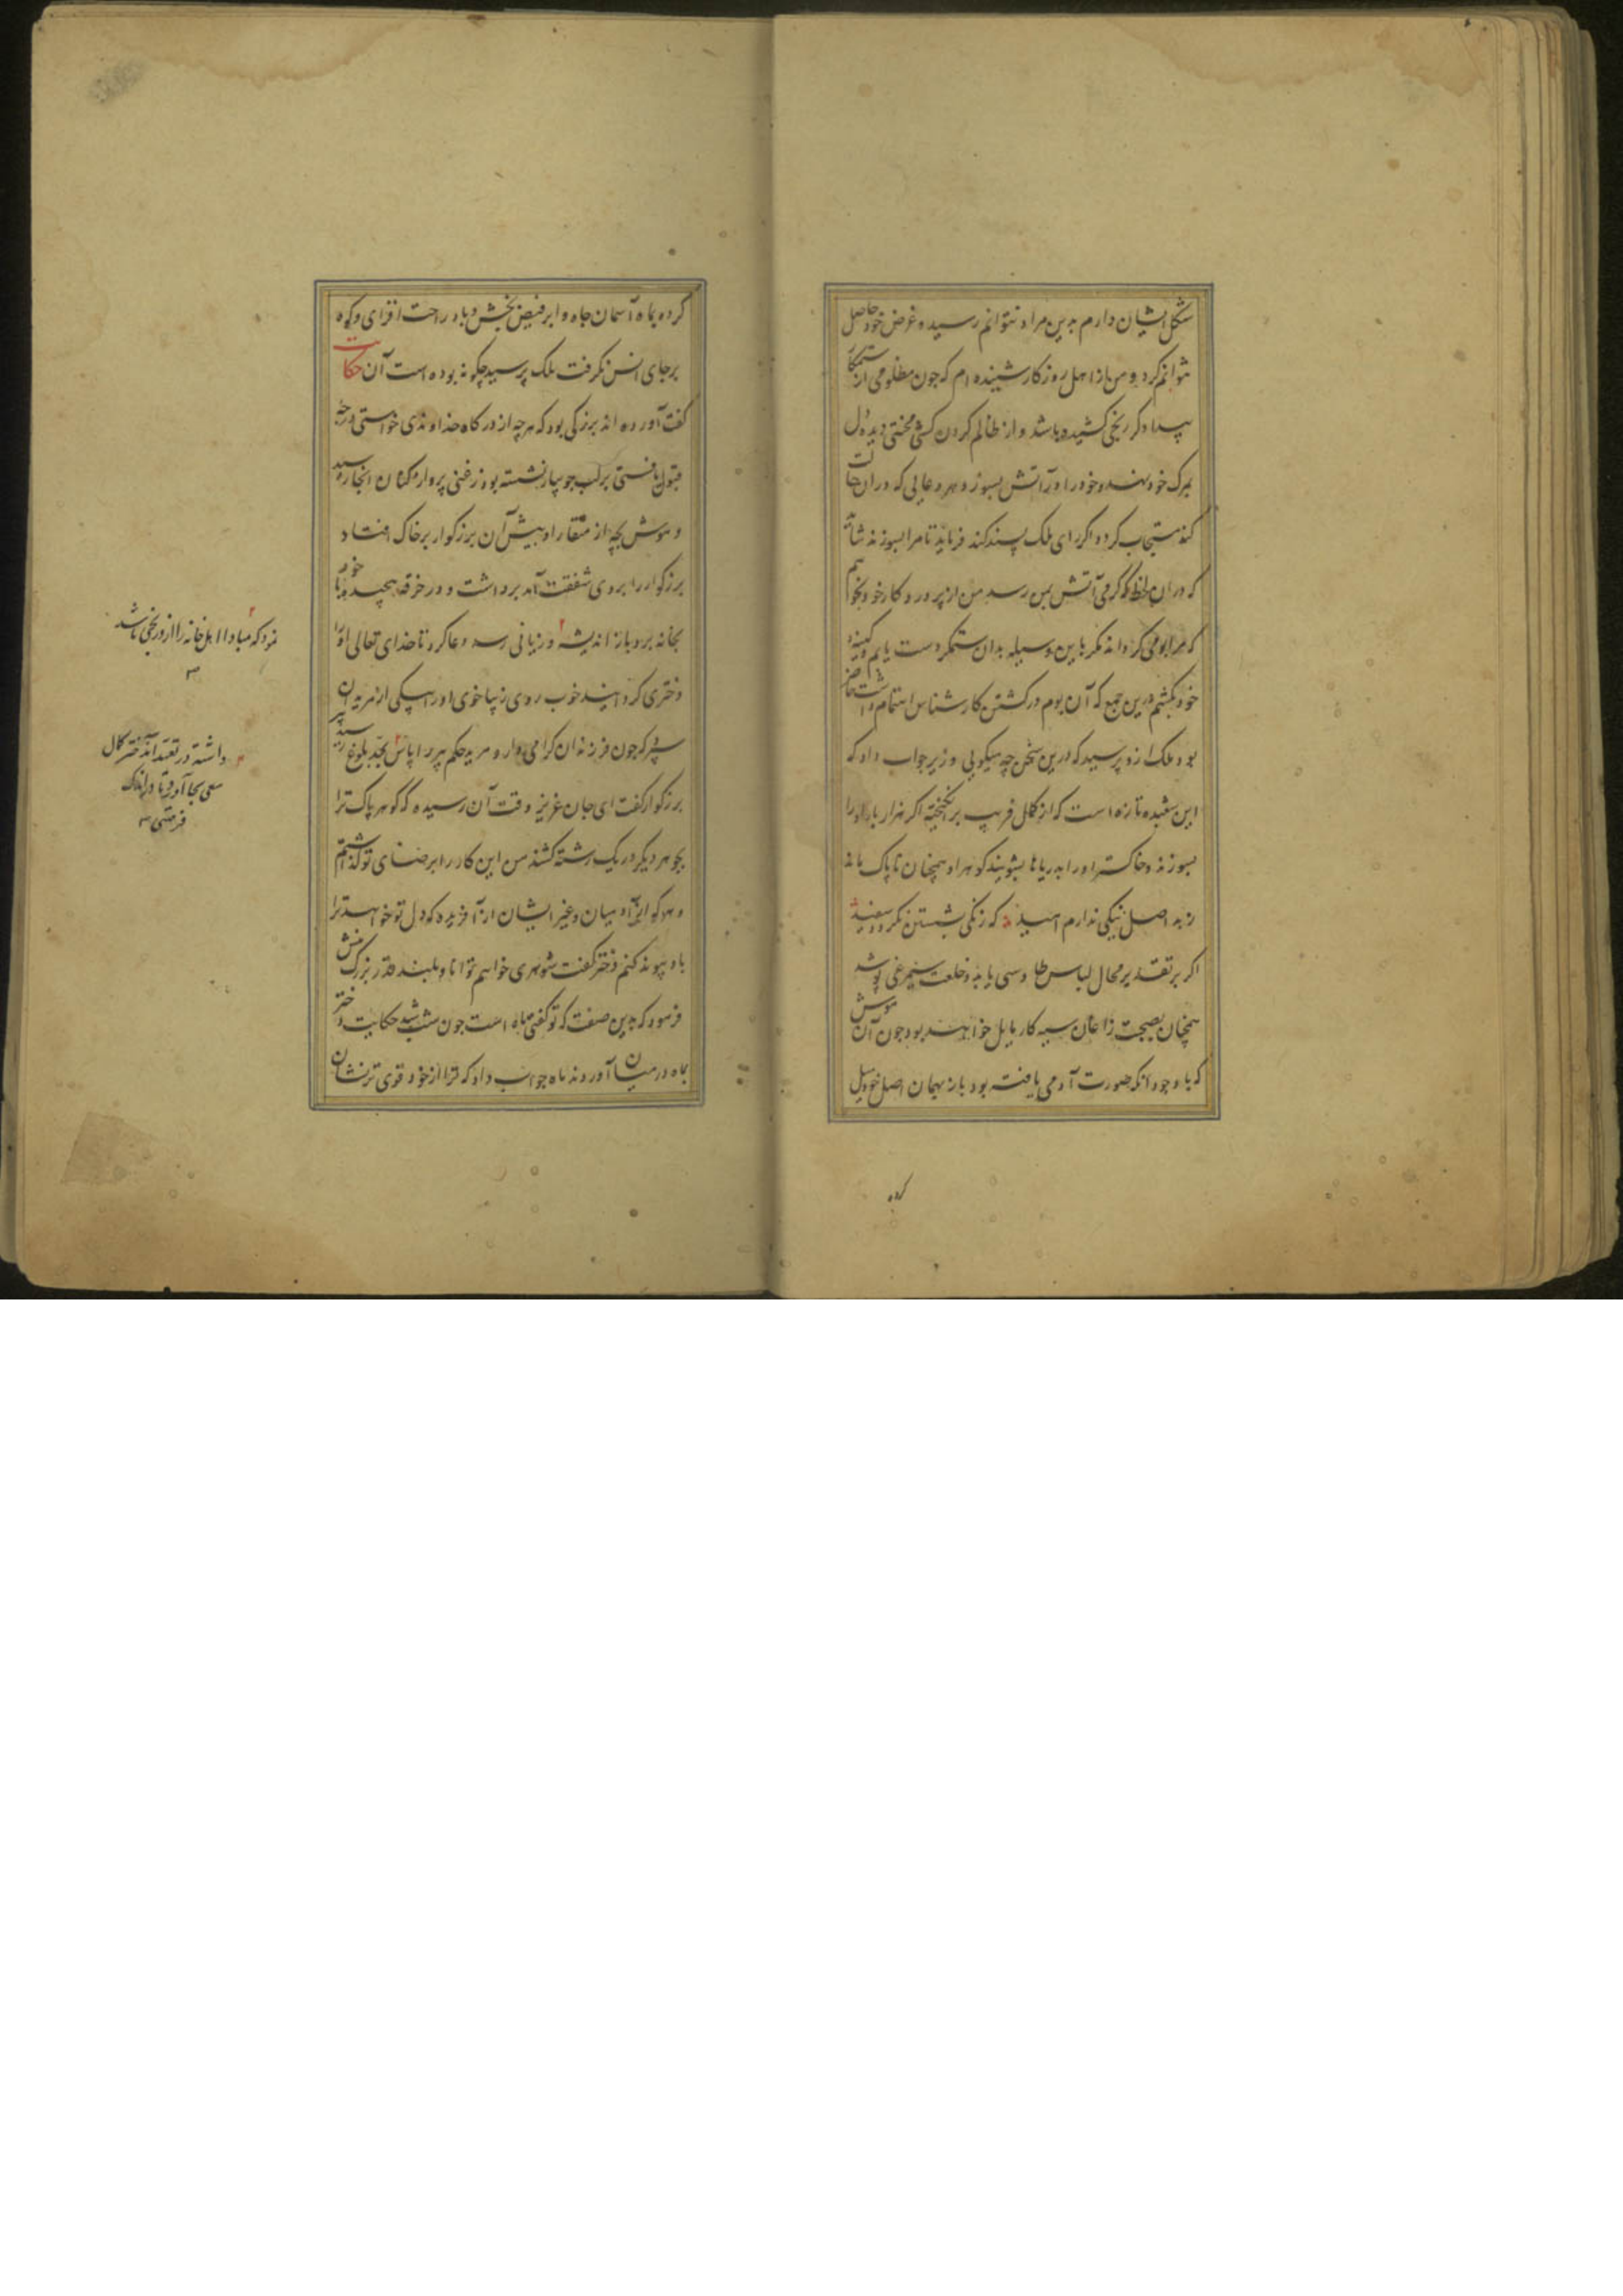 شکل ایشان دارم بدین مراد نتوانم رسید و غرض خود حاصل
نتوانم کرد و من باز از اهل روزکار شنیده ام که چون مظلومی از ستمکار
بیدادکر رنجی کشیده باشد و از ظالم کردن کشی محنتی دیده دل
بمرک خود نهد و خود را در آتش بسوزد هر دعایی که در ان حالت
کند مستجاب کردد اکر رای ملک پسند کند فرماید تا مرا بسوزند شاید
که دران لحظه که کرمی آتش بمن رسد من از پروردکار خود بخواهم
که مرا بومی کرداند مکر باین وسیله بدان ستمکر دست یابم و کینه
خود بکشم درین جمع که آن بوم در کشتن کارشناس اهتمام داشت حاضر
بود ملک ازو پرسید که درین سخن چه میکویی وزیر جواب داد که
این شعبده تازه است که از کمال فریب برانکیخته اکر هزار بار او را
بسوزند و خاکستر او را بدریاها بشویند کوهر او همچنان ناپاک باشد
ز بد اصل نیکی ندارم امید که زنکی بشستن نکردد سفید
اکر بر تقدیر محال لباس طاوسی یابد و خلعت سیمرغی پوشد
همچنان بصحبت زاغان سیه کار مایل خواهد بود چون آن موش
که با وجود آنکه صورت آدمی یافته بود باز بهمان اصل خود میل
کرده
کرده بماه آسمان جاه و ابر فیض بخش و باد راحت افزای و کوه
برجای انس نکرفت ملک پرسید چکونه بوده است آن حکایت
کفت آورده اند بزرکی بود که هرچه از درکاه خداوندی خواستی درجه
قبول یافتی بر لب جویبار نشسته بود زغنی پرواز کنان انجا رسید
و موش بچه از منقار او پیش آن بزرکوار بر خاک افتاد
بزرکوار را بر وی شفقت آمد برداشت و در خرقه پیچید با خود
بخانه برد باز اندیشه و زیانی رسد دعا کرد تا خدای تعالی او را
دختری کرداند خوب روی زیبا خوی او را بیکی از مریدان
سپرد که چون فرزندان کرامی دارد مرید حکم پیر را پاس بحد بلوغ رسید
بزرکوار کفت ای جان عزیز وقت آن رسیده که کوهر پاک ترا
بجوهر دیکر در یک رشته کشند من این کار را برضای تو کذاشتم
و هر که از آدمیان و غیر ایشان از آفریده که دل تو خواهد ترا
باو پیوند کنم دختر کفت شوهری خواهم توانا و بلند قدر بزرک منش
فرمود که بدین صفت که تو کفتی ماه است چون شب شد حکایت دختر
بماه در میان آوردند ماه جواب داد که ترا از خود قوی تر نشان
نمود که مبادا اهل خانه را ازو رنجی باشد
داشته در تعهد آن دختر کمال
سعی بجا آورد تا در اندک
فرصتی